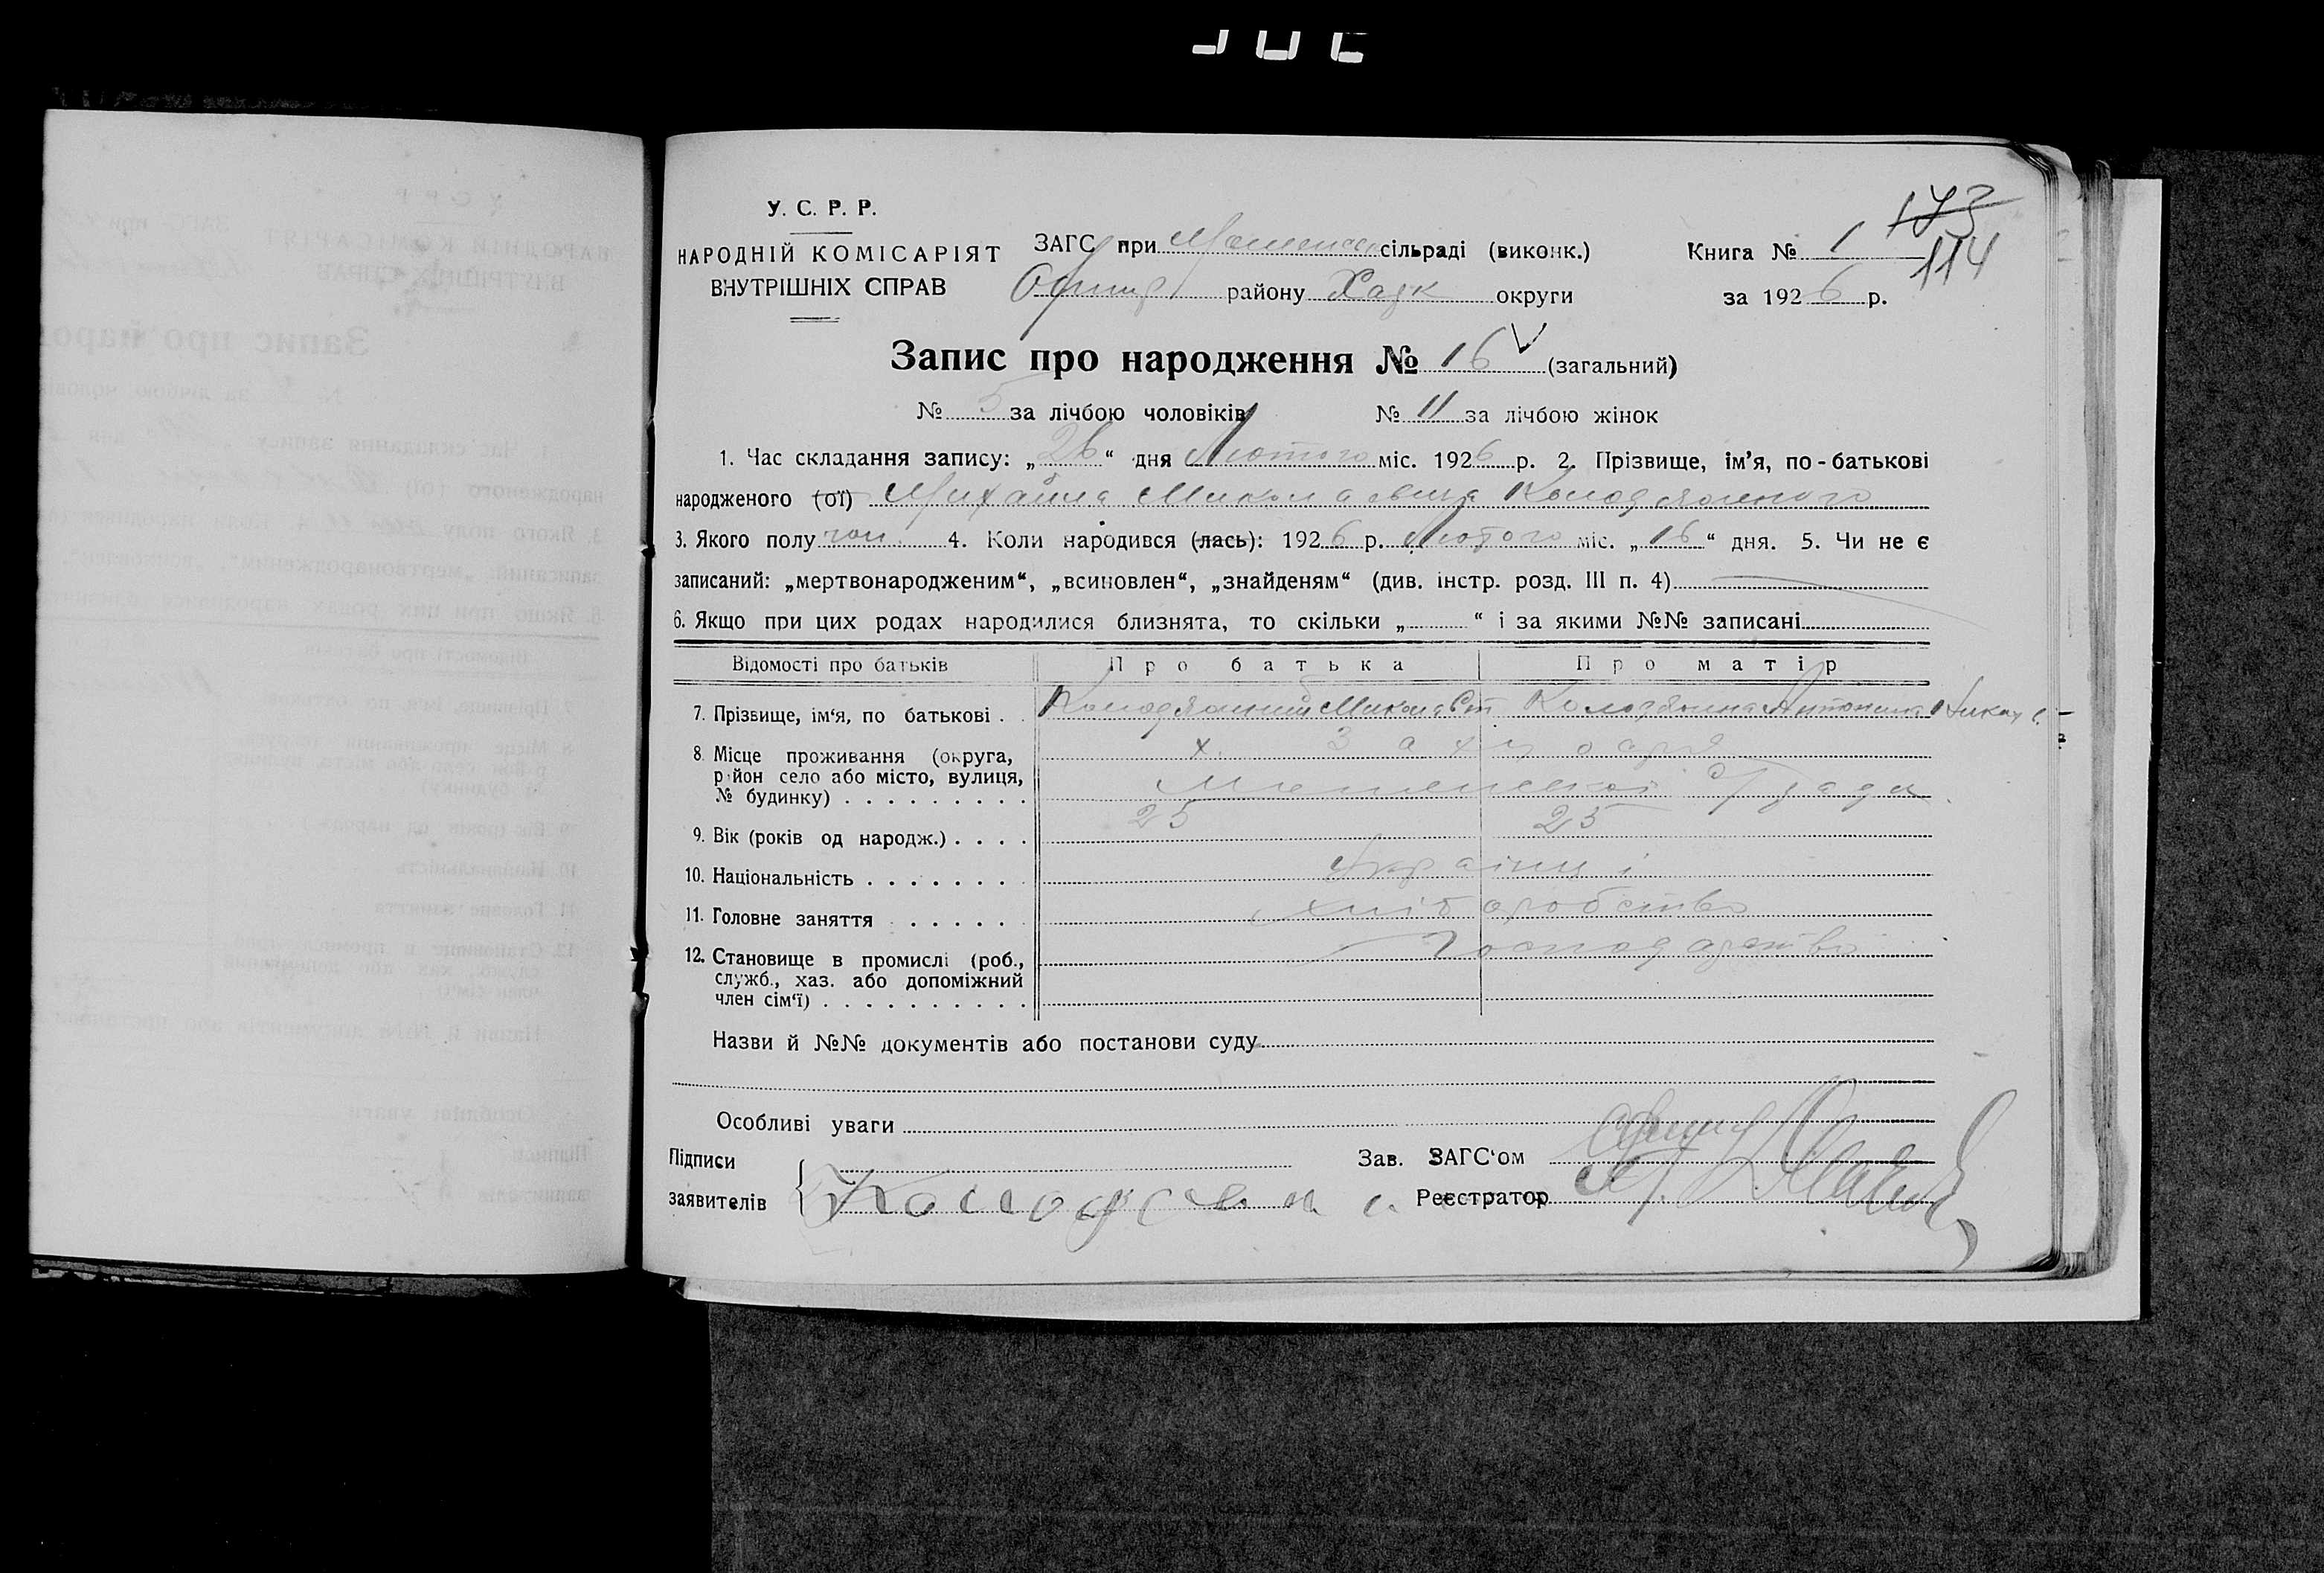 У. С. Р. Р.
НАРОДНІЙ КОМІСАРІЯТ
ВНУТРІШНІХ СПРАВ
ЗАГС при сільраді (виконк.)
району округи
Книга № 1
173
114
за 1926 р.
Запис про народження № 16 (загальний)
№ 5 за лічбою чоловіків № 11 за лічбою жінок
1. Час складання запису: „26“ дня Лютого міс. 1926 р. 2. Прізвище, ім'я, по-батькові
народженого (ої) Михайла Миколаєвича Колодяжного
3. Якого полу чол. 4. Коли народився (лась): 1926 р. Лютого міс. „16“ дня. 5. Чи не є
записаний: „мертвонародженим“, „всиновлен“, „знайденям“ (див. інстр. розд. III п. 4)
6. Якщо при цих родах народилися близнята, то скільки „ “ і за якими №№ записані
Відомості про батьків Про батька Про матір
7. Прізвище, ім'я, по батькові . . Колодяжний Микола Ст Колодяжна Антонина
8. Місце проживання (округа,
район село або місто, вулиця,
№ будинку) . . . . . . . . .
х.
9. Вік (років од народж.) . . . . 25 25
10. Національність . . . . . . . Українці
11. Головне заняття . . . . . . хліборобство
12. Становище в промислі (роб.,
служб., хаз. або допоміжний
член сім'ї) . . . . . . . . . .
Господарство
Назви й №№ документів або постанови суду
Особливі уваги
Підписи
заявителів
Зав. ЗАГС'ом
Реєстратор